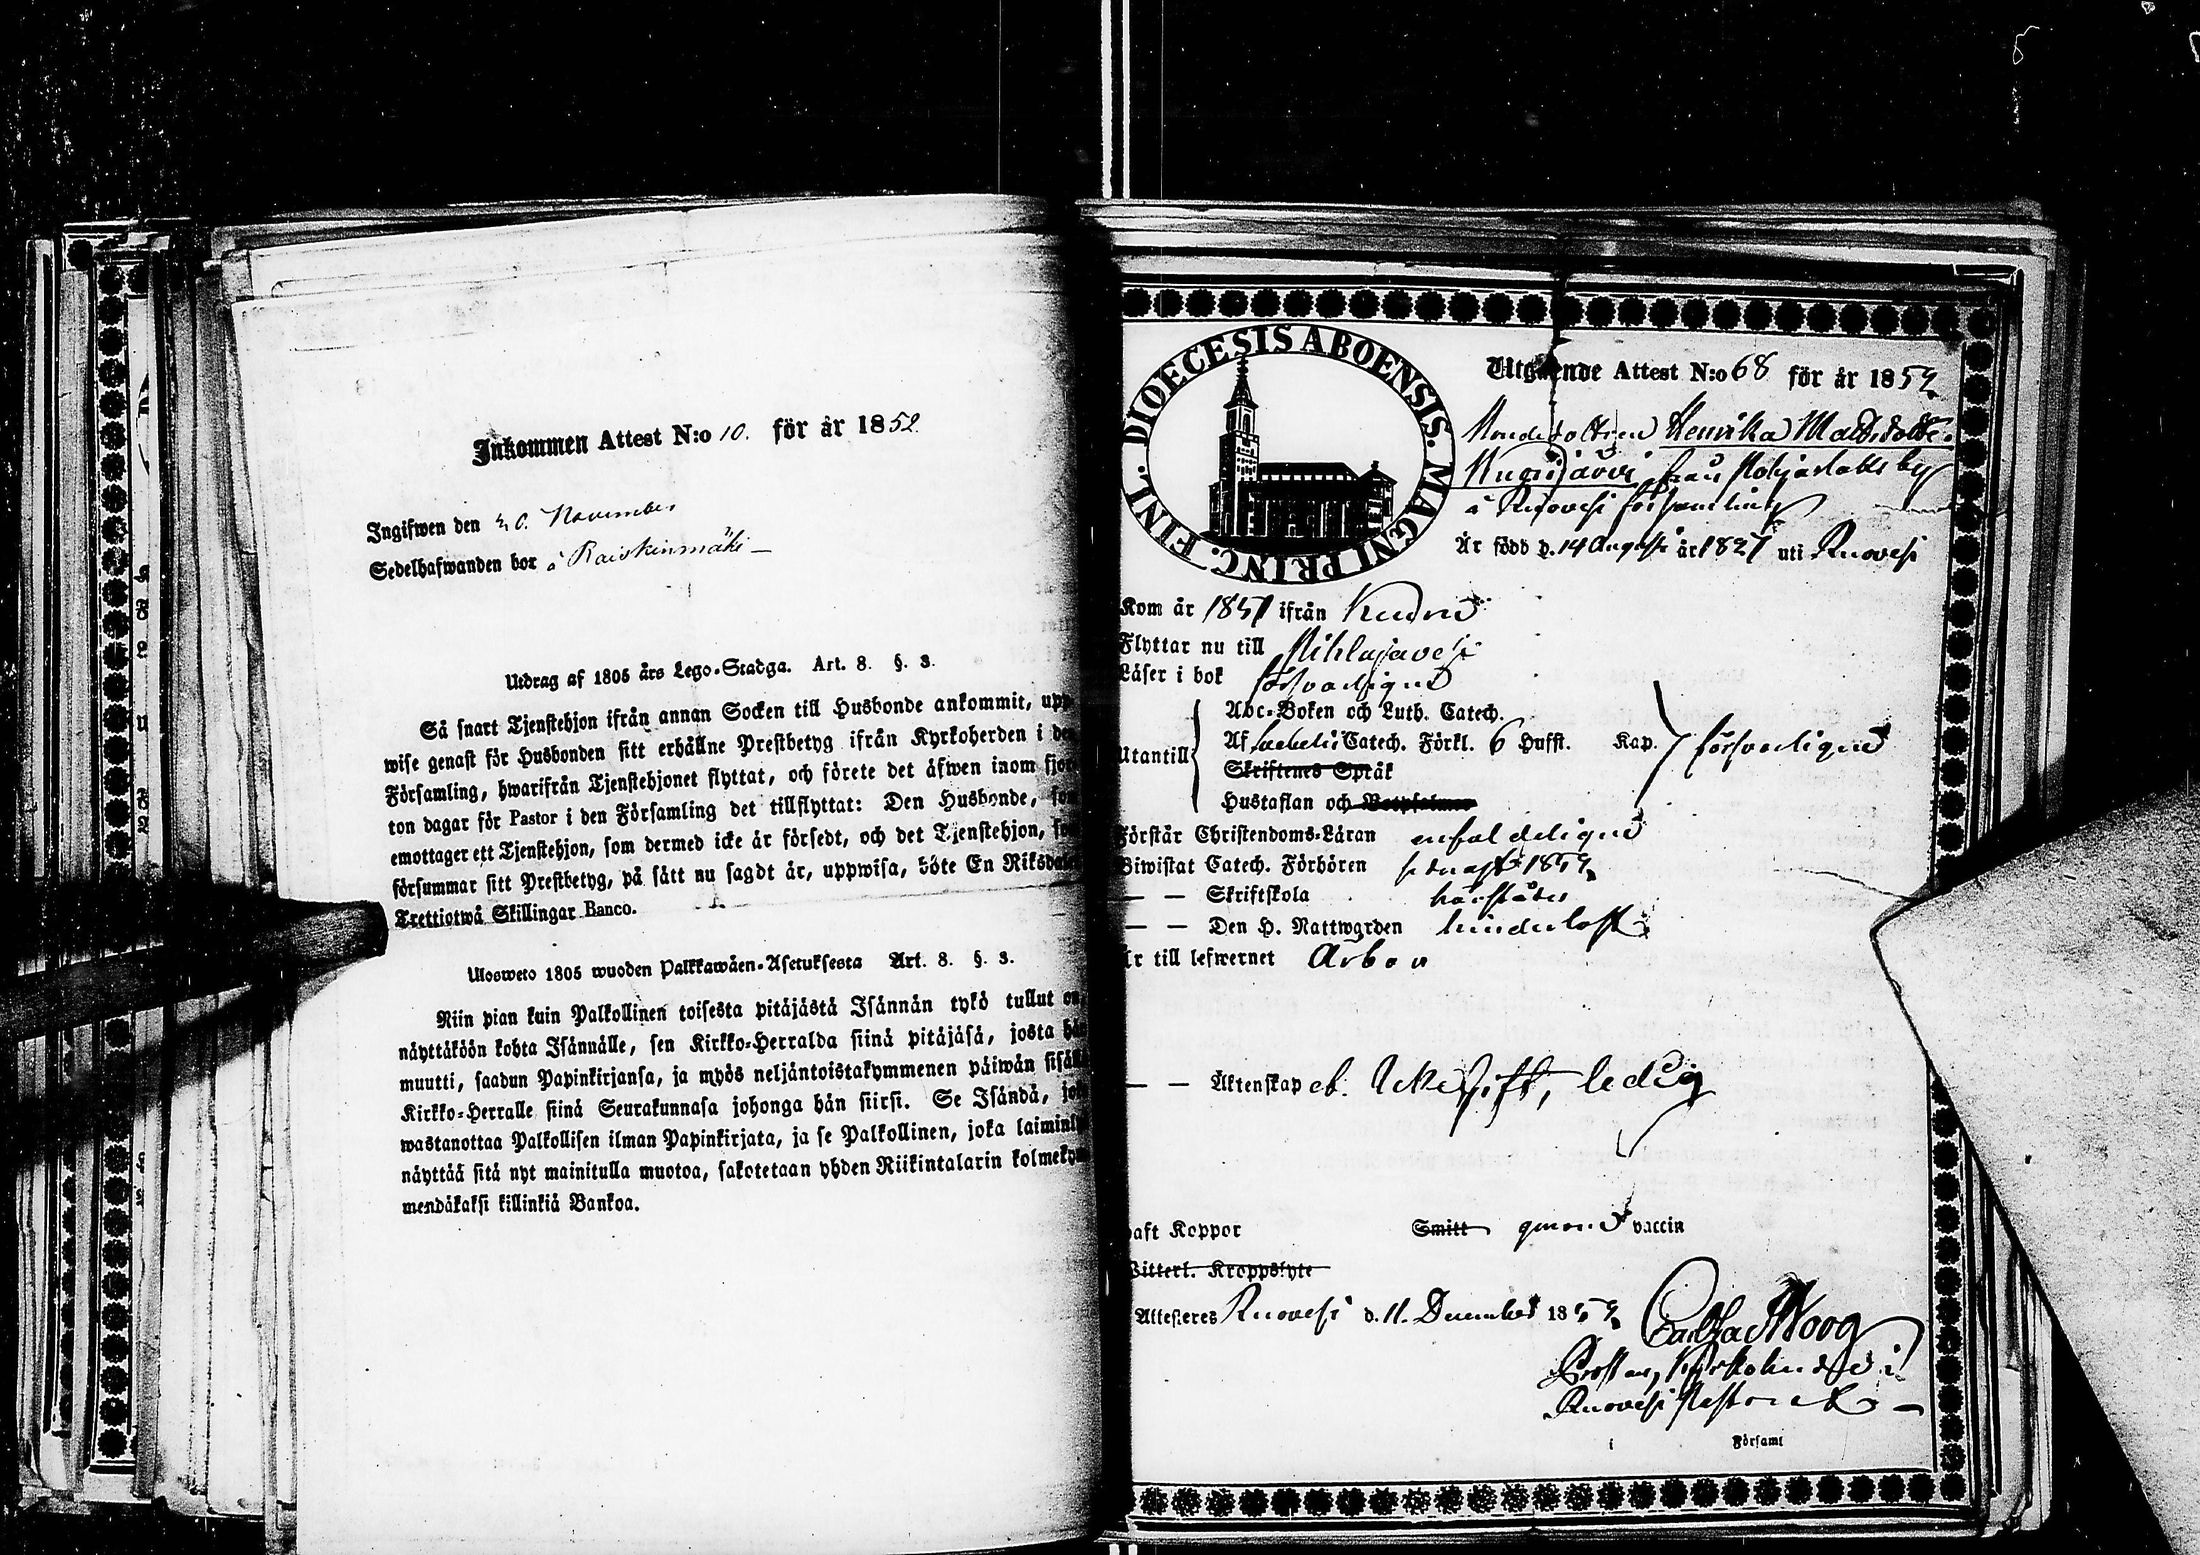 Inkommen Attest N:o 10. för år 1852.
Ingifwen den 20. November
Sedelhafwanden bor å Raiskinmäki —
Utdrag af 1805 års Lego-Stadga. Art. 8. §. 3.
Så snart Tjenstehjon ifrån annan Socken till Husbonde ankommit, upp
wise genast för Husbonden sitt erhållne Prestbetyg ifrån Kyrkoherden i den
Församling, hwarifrån Tjenstehjonet flyttat, och förete det äfwen inom fjor
ton dagar för Pastor i den Församling det tillflyttat: Den Husbonde, som
emottager ett Tjenstehjon, som dermed icke är försedt, och det Tjenstehjon, som
försummar sitt Prestbetyg, på sätt nu sagdt är, uppwisa, böte En Riksdaler
Trettiotwå Skillingar Banco.
Ulosweto 1805 wuoden Palkkawäen-Asetuksesta Art. 8. §. 3.
Niin pian kuin Palkollinen toisesta pitäjästä Isännän tykö tullut on,
näyttäköön kohta Isännälle, sen Kirkko-Herralda siinä pitäjäsä, josta hän
muutti, saadun Papinkirjansa, ja myös neljäntoistakymmenen päiwän sisällä
Kirkko-Herralle siinä Seurakunnasa johonga hän siirsi. Se Isändä, joka
wastanottaa Palkollisen ilman Papinkirjata, ja se Palkollinen, joka laiminlyö
näyttää sitä nyt mainitulla muotoa, sakotetaan yhden Riikintalarin kolmekym
mendäkaksi killinkiä Bankoa.
DIOECESIS ABOENSIS. MAGNI PRINC. FINL.
Utgående Attest N:o 68 för år 1852
Bondedottren Henrika Mattsdotter
från by
i Ruovesi församling
Är född d. 14 Augusti år 1827 uti Ruovesi
Kom år 1851 ifrån
Flyttar nu till Pihlajavesi
Läser i bok försvarligen
Abc-Boken och Luth. Catech.
Utantill Af Catech. Förkl. 6 Hufst. Kap. försvarligen
Skriftenes Språk
Hustaflan och Botpsalmer
Förstår Christendoms-Läran enfaldeligen
Biwistat Catech. Förhören senast 1852
— — Skriftskola härstädes
— — Den H. Nattwarden
Är till lefwernet Ärbar
— — Äktenskap ledig
haft Koppor Smitt genom vaccin
Witterl. Kroppslyte
Attesteres Ruovesi d. 11. December 1852
Prost och Kyrkoherde i
Ruovesi Pastorat —
i Församl